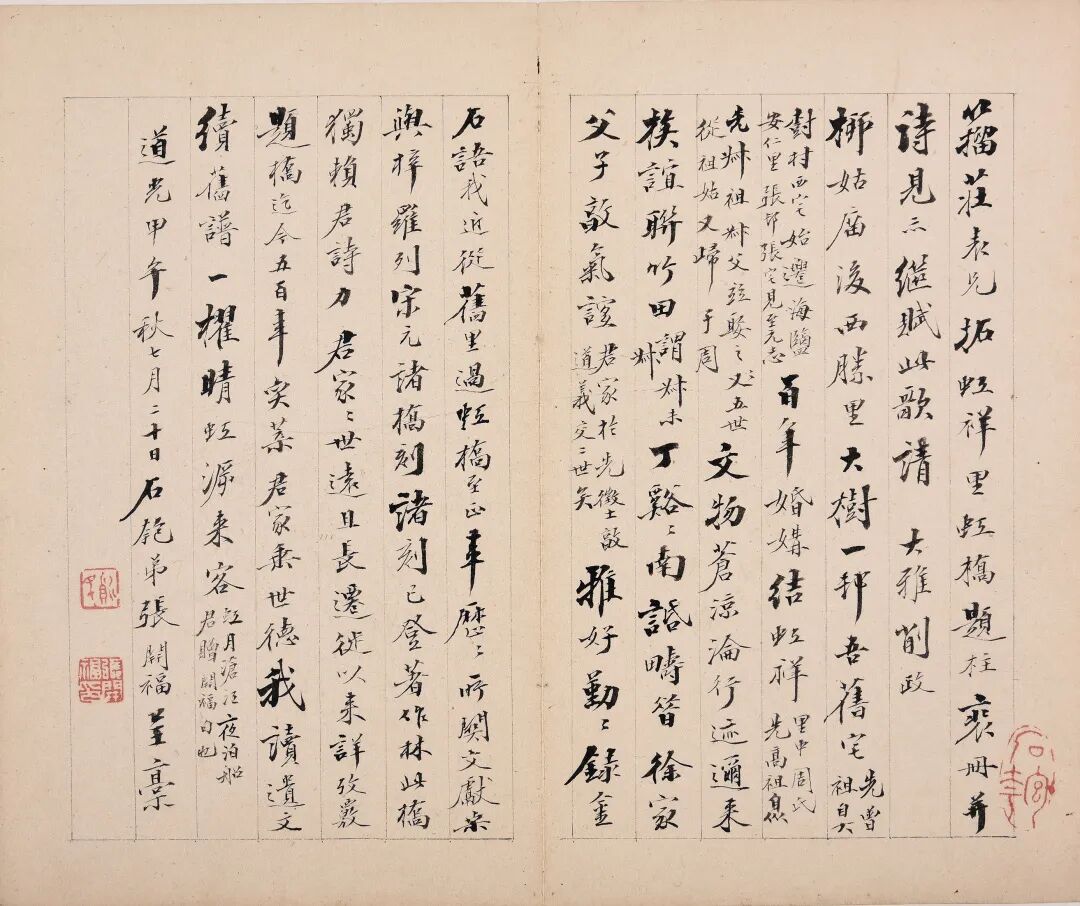 籀莊表兄拓虹祥里虹橋題柱裒冊并
詩見示繼賦此歌請 大雅削政
柳姑廟後西塍里大樹一邨吾舊宅先曾祖自大
樹村西宅始遷海鹽安仁里張邨張宅見至元志百年婚媾結虹祥里中周氏先高祖自
先叔祖叔父竝娶之又五世從祖姑又歸于周文物蒼涼淪行迹邇來
族誼聯竹田謂叔未叔丁谿谿南話疇昔徐家
父子敵氣誼君家於先徵士敵道義交二世矣雅好勤勤錄金
石語我近從舊里過虹橋至正年歷歷所關文獻桑
與梓羅列宋元諸橋刻諸刻已登著作林此橋
獨賴君詩力君家家世遠且長遷徙以來詳攷覈
題橋迄今五百年奕葉君家乘世德我讀遺文
續舊譜一櫂晴虹源來客虹月滄江夜泊船君贈開福句也
道光甲午秋七月二十日石匏弟張開福並稾
張開福印